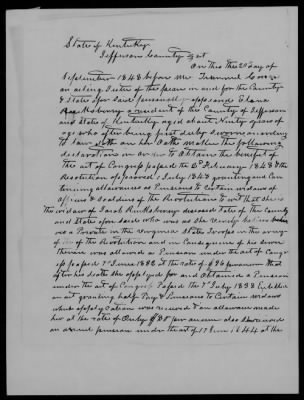 State of Kentucky
Jefferson County Sct
On this the 2d day of
September 1848 before me
an acting Justice of the peace in and for the County
& State aforesaid personally appeared
a resident of the County of Jefferson
and State of Kentucky aged about Ninety years of
age who after being first duly sworn according
to law doth on her Oath make the following
declaration in order to obtain the benefit of
the act of Congress passed the 2 February 1848 & the
Resolution approved 1 July 1848 granting and con
tinuing allowances as Pensions to certain widows of
officers & Soldiers of the Revolution to wit that she is
the widow of Jacob deceased late of the County
and State aforesaid who was as she verily believes
as a Private in the Virginia State Troops in the army
of the Revolution and in Consequence of his
therein was allowed a Pension under the act of Congr
ess passed 7 June 1832 at the rate of $ that
after his death she applyed for and obtained a Pension
under the act of Congress Passed the 7 July 1838 Entitled
an act granting half Pay & Pensions to Certain widows
which application was received & an allowance made
her at the rate of only $ per annum also she received
an annual pension under the act of 17 June 1844 at the